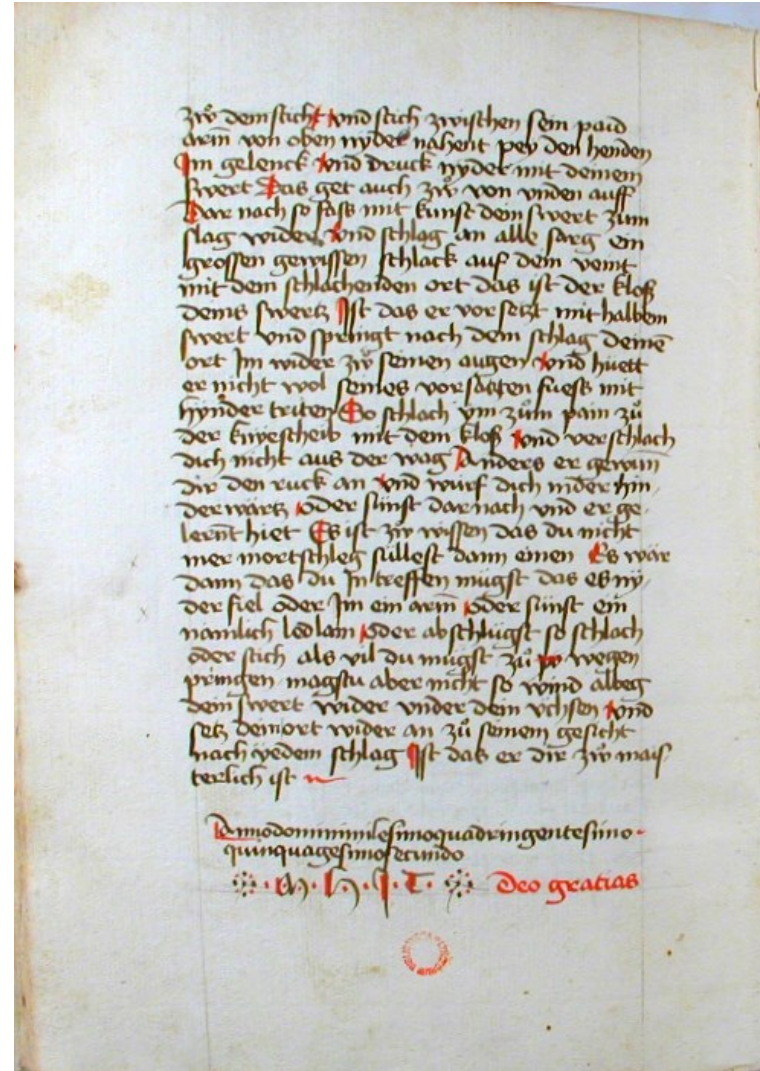 zẘ dem stich vnd stich zwischen sein paid
arm̄ von oben nyder nahent pey den henden
Im gelenck vnd druck nyder mit deinem
swert Das get auch zẘ von vnden auff
Dar nach so fass mit kunst dein swert zum
slag wider vnd schlag an alle sarg ein
grossen gewissen schlack auf dem veint
mit dem schlachenden ort das ist der kloß
deins swertz Ist das er vor setzt mit halbem
swert vnd springt nach dem schlag deine̅
ort Im wider zẘ seinen augen vnd huett
er nicht wol seines vor satzten fuess mit
hynder triten So schlach ym zům pain zů
der knyescheib mit dem kloß vnd verschlach
dich nicht aus der wag Anders er gewun̅
dir den ruck an vnd wurf dich inder hin
der wartz oder sunst dar nach vnd er ge
lernt hiet Es ist zẘ wissen das du nicht
mer mortschleg sullest dann einen Es wär
dann das du In treffen mügst das es ny
der fiel oder Im ein arm̄ oder sünst ein
namlich led lam oder abschlügst so schlach
oder stich als vil du mügst zů wegen
pringen magstu aber nicht so wind albeg
dein swert wider vnder dein vchsen vnd
setz dein ort wider an zů seinem gesicht
nach yedem schlag Ist das er dir zẘ mais
terlich ist
Anno domini milesimo quadringentesimo
quinquagesimo secundo
Deo gratias